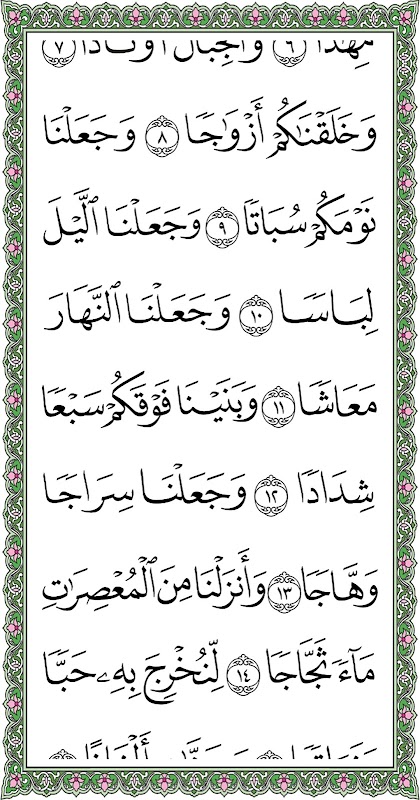 مِهَٰدًا ٦ وَٱلْجِبَالَ أَوْتَادًا ٧
وَخَلَقْنَٰكُمْ أَزْوَٰجًا ٨ وَجَعَلْنَا
نَوْمَكُمْ سُبَاتًا ٩ وَجَعَلْنَا ٱلَّيْلَ
لِبَاسًا ١٠ وَجَعَلْنَا ٱلنَّهَارَ
مَعَاشًا ١١ وَبَنَيْنَا فَوْقَكُمْ سَبْعًا
شِدَادًا ١٢ وَجَعَلْنَا سِرَاجًا
وَهَّاجًا ١٣ وَأَنزَلْنَا مِنَ ٱلْمُعْصِرَٰتِ
مَآءً ثَجَّاجًا ١٤ لِّنُخْرِجَ بِهِۦ حَبًّا